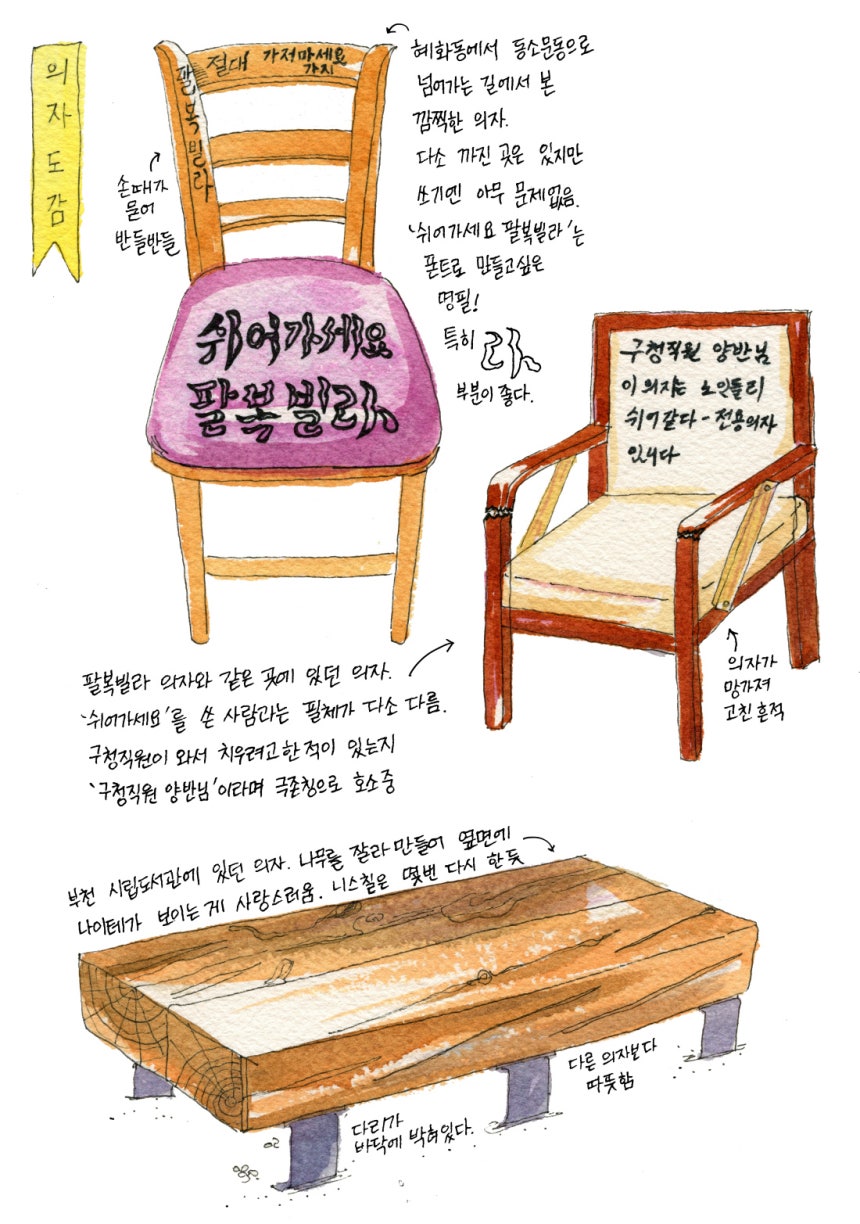 의자도감
절대 가져마세요
가지
팔복빌라
쉬어가세요
팔복빌라
손때가
묻어
반들반들
혜화동에서 동소문동으로
넘어가는 길에서 본
깜찍한 의자.
다소 까진 곳은 있지만
쓰기엔 아무 문제없음.
'쉬어가세요 팔복빌라'는
폰트로 만들고싶은
명필!
특히 라
부분이 좋다.
구청직원 양반님
이 의자는 노인들리
쉬어같다-전용의자
입니다
의자가
망가져
고친 흔적
팔복빌라 의자와 같은 곳에 있던 의자.
'쉬어가세요'를 쓴 사람과는 필체가 다소 다름.
구청직원이 와서 치우려고한적이 있는지
'구청직원 양반님'이라며 극존칭으로 호소중
부천 시립도서관에 있던 의자. 나무를 잘라 만들어 옆면에
나이테가 보이는게 사랑스러움. 니스칠은 몇번 다시 한듯
다른 의자보다
따뜻함
다리가
바닥에 박혀있다.